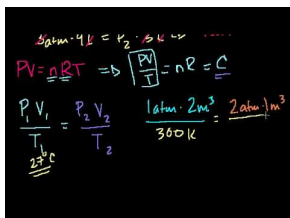 3atm · 4L = P₂ · 3L
PV = nRT ⇒ PV/T = nR = C
P₁V₁/T₁ = P₂V₂/T₂
27°C
1atm · 2m³/300K = 2atm · 1m³